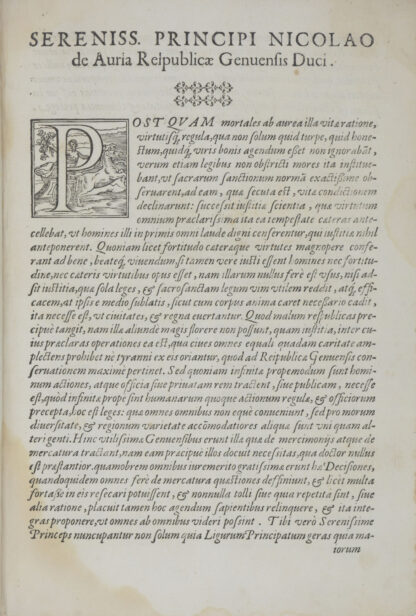 SERENISS. PRINCIPI NICOLAO
de Auria Reſpublicæ Genuenſis Duci.
POSTQVAM mortales ab aurea illa vitæ ratione,
virtutiſq́, regula, qua non ſolum quid turpe, quid hone-
ſtum, quidq́, viris bonis agendum eſſet non ignorabāt,
verum etiam legibus non obſtricti mores ita inſtitue-
bant, vt ſacrarum ſanctionum normā exactiſſime ob-
ſeruarent, ad eam, quæ ſecuta eſt, vitæ condictionem
declinarunt: ſucceſſit iuſtitiæ ſcientia, quæ virtutum
omnium præclariſſima ita ea tempeſtate cæteras ante-
cellebat, vt homines illi in primis omni laude digni cenſerentur, qui iuſtitiæ nihil
anteponerent. Quoniam licet fortitudo cæteræque virtutes magnopere confe-
rant ad bene, beateq́; viuendum, ſi tamen vere iuſti eſſent homines nec fortitu-
dine, nec cæteris virtutibus opus eſſet, nam illarum nullus ferè eſt vſus, niſi ad-
ſit iuſtitia, quæ ſola leges, & ſacroſanctam legum vim vtilem reddit, atq́; effi-
cacem, at ipſis e medio ſublatis, ſicut cum corpus anima caret neceſſario cadit,
ita neceſſe eſt, vt ciuitates, & regna euertantur. Quod malum reſpublicas præ-
cipuè tangit, nam illæ aliunde magis florere non poſſunt, quam iuſtitia, inter cu
ius præclaras operationes ea eſt, quæ ciues omnes equali quadam caritate am-
plectens prohibet nè tyranni ex eis oriantur, quod ad Reipublicæ Genuenſis con-
ſeruationem maximè pertinet. Sed quoniam infinitæ propemodum ſunt homi-
num actiones, atque officia ſiue priuatam rem tractent, ſiue publicam, neceſſe
eſt, quòd infinitæ propè ſint humanarum quoque actionum regulæ, & officiorum
præcepta, hoc eſt leges: quæ omnes omnibus non eque conueniunt, ſed pro morum
diuerſitate, & regionum varietate accōmodatiores aliquæ ſunt vni quam al-
teri genti. Hinc vtiliſſima Genuenſibus erunt illa quæ de mercimonijs atque de
mercatura tractant, nam eam præcipuè illos docuit neceſſitas, qua doctor nullus
eſt præſtantior. quamobrem omnibus iure merito gratiſſimæ erunt hæ Deciſiones,
quandoquidem omnes ferè de mercatura quæſtiones deffiniunt, & licet multa
fortaſſe in eis reſecari potuiſſent, & nonnulla tolli ſiue quia repetita ſint, ſiue
alia ratione, placuit tamen hoc agendum ſapientibus relinquere, & ita inte-
gras proponere, vt omnes ab omnibus videri poſſint. Tibi verò Sereniſſime
Princeps nuncupantur non ſolum quia Ligurum Principatum geras quia ma-
iorum